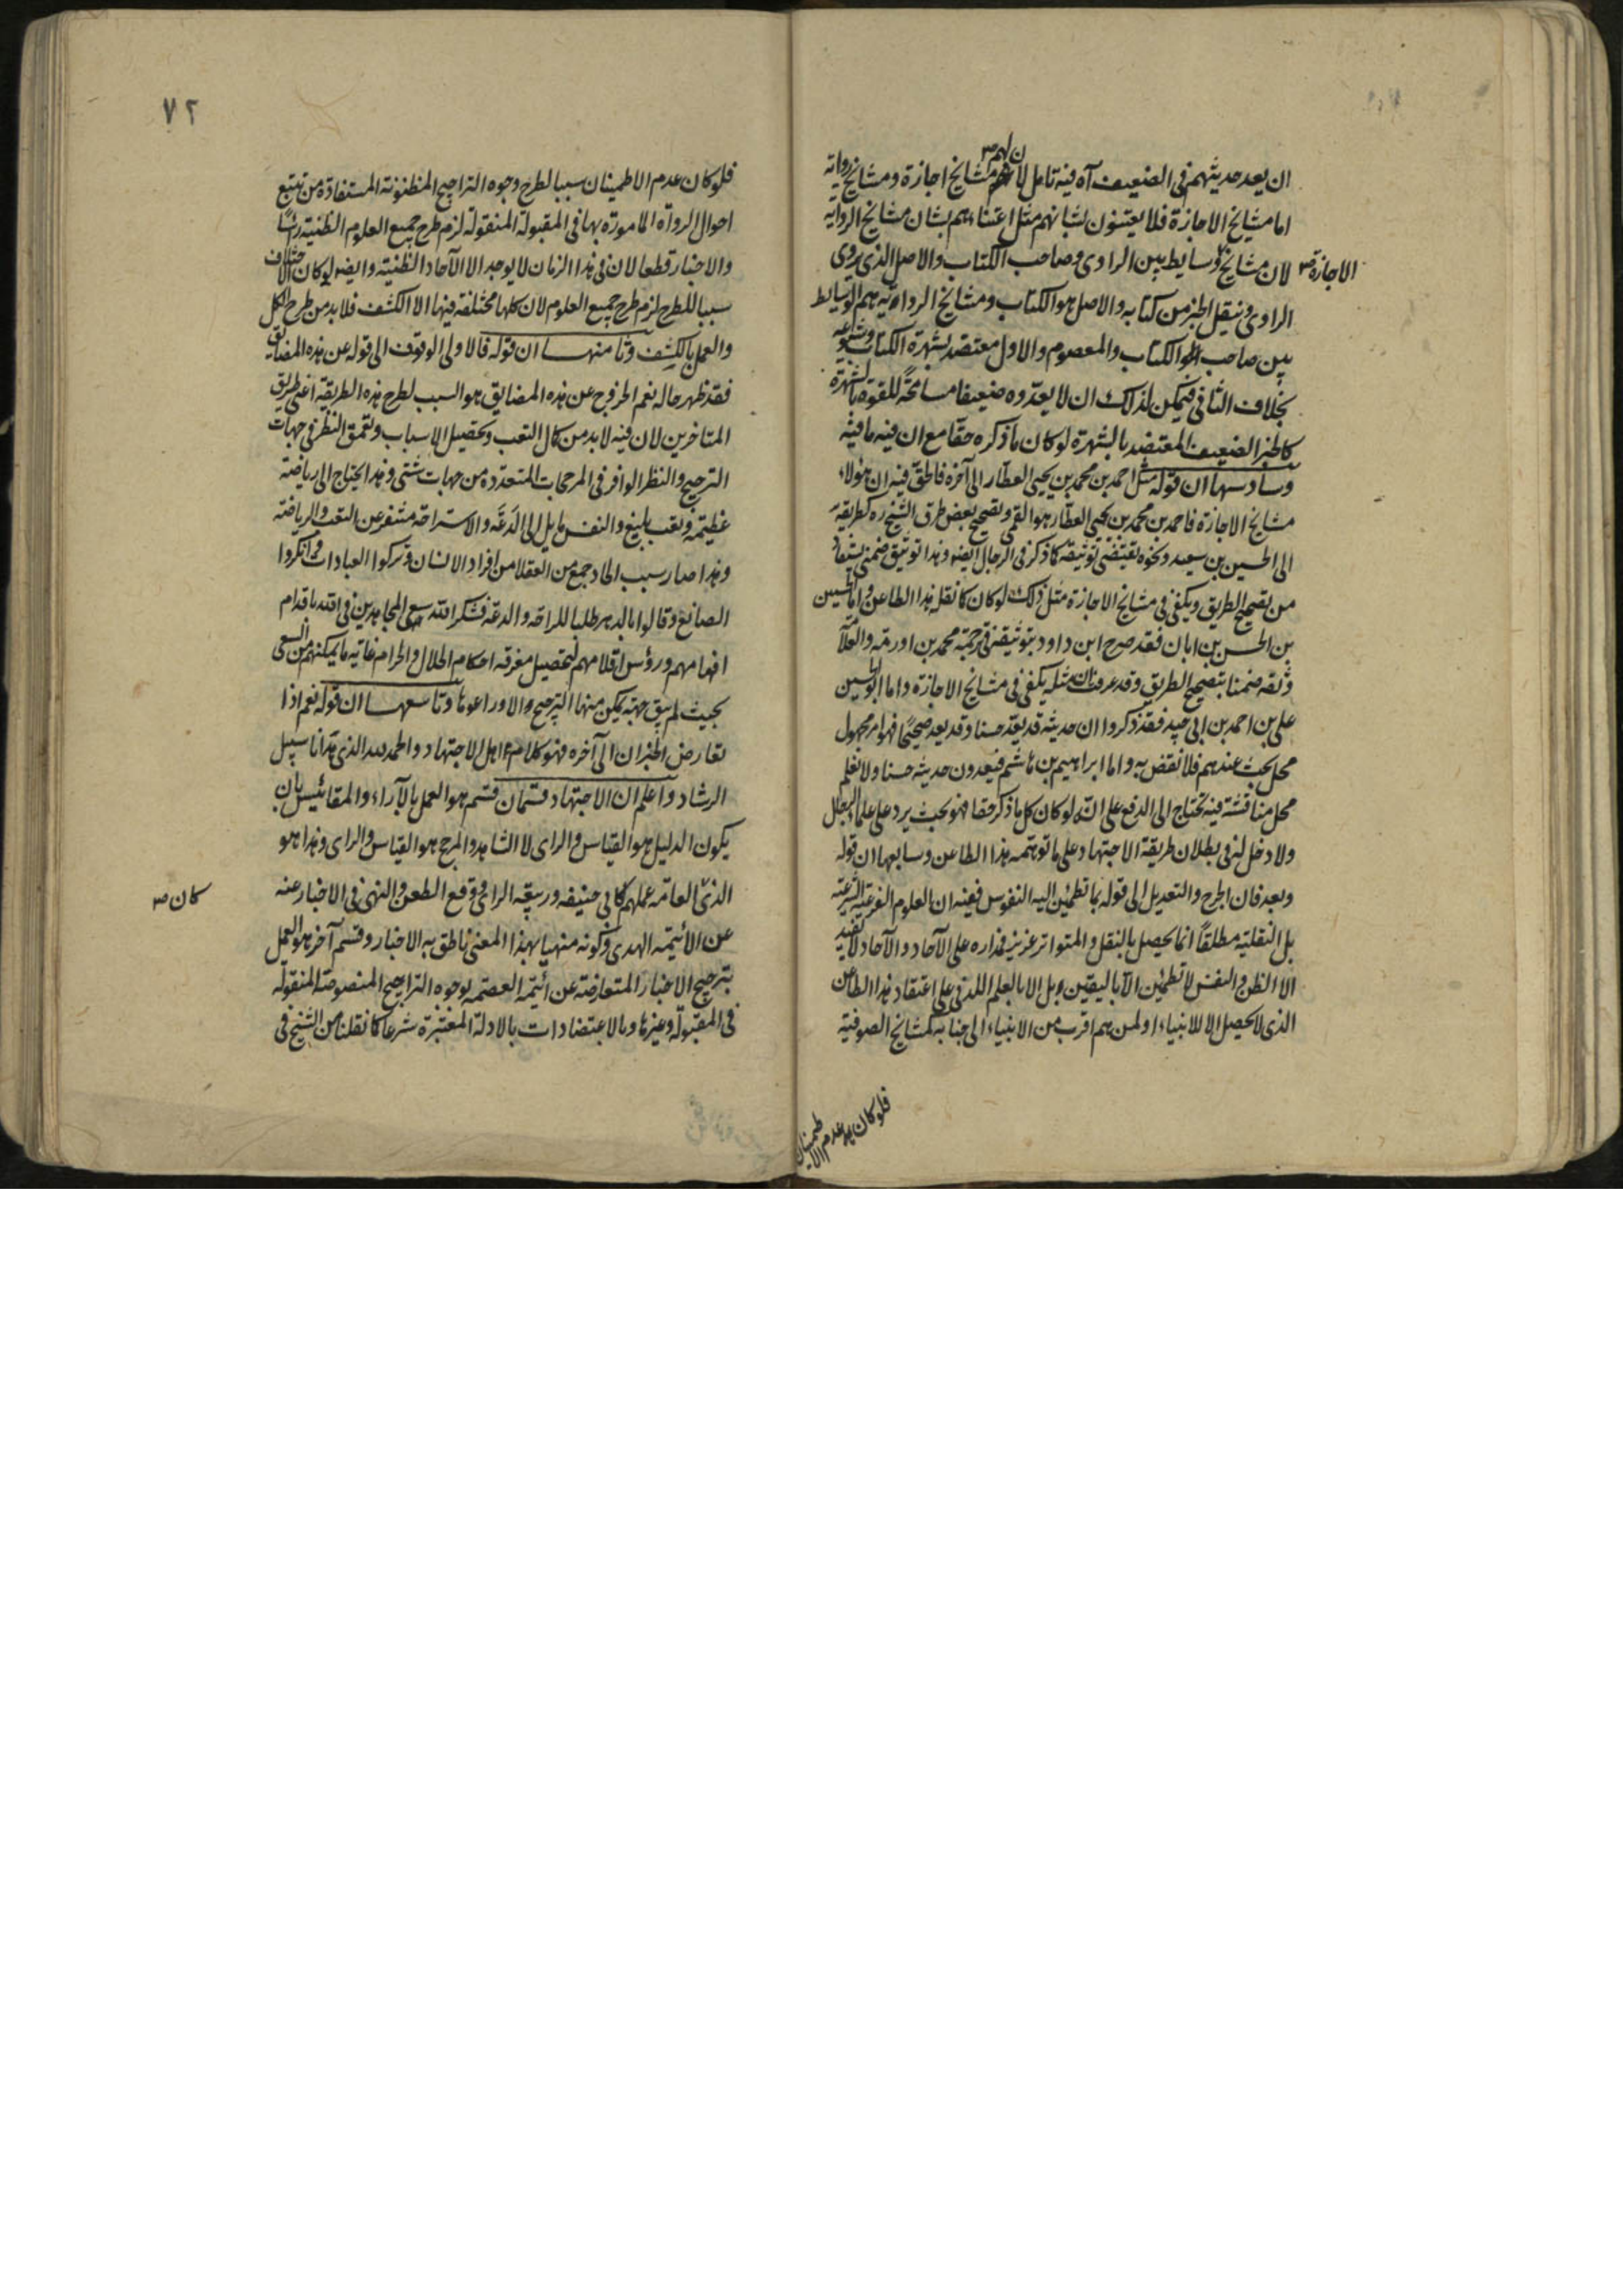 ان يعد حديثهم في الضعيف آه فيه تامل لان لهم مشايخ اجازة ومشايخ رواية
اما مشايخ الاجازة فلا يعتنون بشانهم مثل اعتنائهم بشان مشايخ الرواية
لان مشايخ الاجازة وسايط بين الراوى وصاحب الكتاب والاصل الذى يروى
الراوى وينقل الخبر من كتابه والاصل هو الكتاب ومشايخ الرواية هم الوسايط
بين صاحب الكتاب والمعصوم والاول معتضد بشهرة الكتاب وشيوعه
بخلاف الثانى فيمكن لذلك ان لا يعدّوه ضعيفا مسامحةً للقوة بالشهرة
كالخبر الضعيف المعتضد بالشهرة لو كان ما ذكره حقّا مع ان فيه ما فيه
وسادسها ان قوله مثل احمد بن محمد بن يحيى العطّار الى آخره فالحقّ فيه ان هؤلاء
مشايخ الاجازة فاحمد بن محمد بن يحيى العطّار هو القمى وتصحيح بعض طرق الشيخ ره كطريقه
الى الحسين بن سعيد ونحوه يقتضى توثيقه كما ذكر فى الرجال ايضا وهذا توثيق ضمنى يستفاد
من تصحيح الطريق ويكفى فى مشايخ الاجازة مثل ذلك لو كان كما نقله هذا الطاعن واما الحسين
بن الحسن بن ابان فقد صرح ابن داود بتوثيقه فى ترجمة محمد بن اورمه والعلّامة
وثّقه ضمنا بتصحيح الطريق وقد عرفت ان مثله يكفى فى مشايخ الاجازة واما ابو الحسين
على بن احمد بن ابى جيد فقد ذكروا ان حديثه قد يعدّ حسنا وقد يعد صحيحًا فهو امر مجهول
محل بحث عندهم فلا نقض به واما ابراهيم بن هاشم فيعدون حديثه حسنا ولا نعلم
محل مناقشة فيه تحتاج الى الدفع على انّه لو كان كل ما ذكر حقا فهو بحث يرد على علماء الرجال
ولا دخل له فى بطلان طريقة الاجتهاد على ما توهّمه هذا الطاعن وسابعها ان قوله
وبعد فان الجرح والتعديل الى قوله بما تطمئن اليه النفوس ففيه ان العلوم الفرعية الشرعية
بل النقلية مطلقاً انما يحصل بالنقل والمتواتر عزيز فمداره على الآحاد والآحاد لا يفيد
الا الظن والنفس لا تطمئن الا باليقين بل الا بالعلم اللدنى على اعتقاد هذا الطاعن
الذى لا يحصل الا للانبياء او لمن هم اقرب من الانبياء الى جنابه كمشايخ الصوفية
فلو كان عدم الاطمينان
٧٢
فلو كان عدم الاطمينان سببا لطرح وجوه التراجيح المظنونة المستفادة من تتبع
احوال الرواة المامورة بها فى المقبولة المنقولة لزم طرح جميع العلوم الظنية رئسًا
والاخبار قطعا لان فى هذا الزمان لا يوجد الا الآحاد الظنية وايضا لو كان الاختلاف
سببا للطرح لزم طرح جميع العلوم لان كلها مختلفة فيها الا الكشف فلا بد من طرح الكل
والعمل بالكشف وثامنها ان قوله فالاولى الوقوف الى قوله عن هذه المضائق
فقد ظهر حاله نعم الخروج عن هذه المضايق هو السبب لطرح هذه الطريقة اعنى طريق
المتاخرين لان فيه لا بد من كمال التعب وتحصيل الاسباب وتعمق النظر فى جهات
الترجيح والنظر الوافر فى المرجحات المتعددة من جهات شتى وهذا يحتاج الى رياضة
عظيمة وتعب بليغ والنفس مايل الى الدَعَة والاستراحة متنفر عن التعب والرياضة
وهذا صار سبب الحاد جمع من العقلا من افراد الانسان وتركوا العبادات وانكروا
الصانع وقالوا بالدهر طلبا للراحة والدعة فشكر الله سعى المجاهدين فى الله باقدام
افهامهم ورؤس اقلامهم لتحصيل معرفة احكام الحلال والحرام غاية ما يمكنهم من السعى
بحيث لم يبق جهة يمكن منها الترجيح الا وراعوها وتاسعها ان قوله نعم اذا
تعارض الخبران الى آخره فهو كلام اهل الاجتهاد والحمد لله الذى هدانا سبيل
الرشاد واعلم ان الاجتهاد قسمان قسم هو العمل بالآراء والمقائيس بان
يكون الدليل هو القياس والراى لا الشاهد والمرجح هو القياس والراى وهذا هو
الذى كان العامة عملهم كابى حنيفه وربيعة الراى ووقع الطعن والنهى فى الاخبار عنه
عن الأئيمة الهدى وكونه منهيا بهذا المعنى ناطق به الاخبار وقسم آخر هو العمل
بترجيح الاخبار المتعارضة عن ائيمة العصمة بوجوه التراجيح المنصوصة المنقولة
فى المقبولة وغيرها وبالاعتضادات بالادلة المعتبرة شرعا كما نقلنا من الشيخ فى